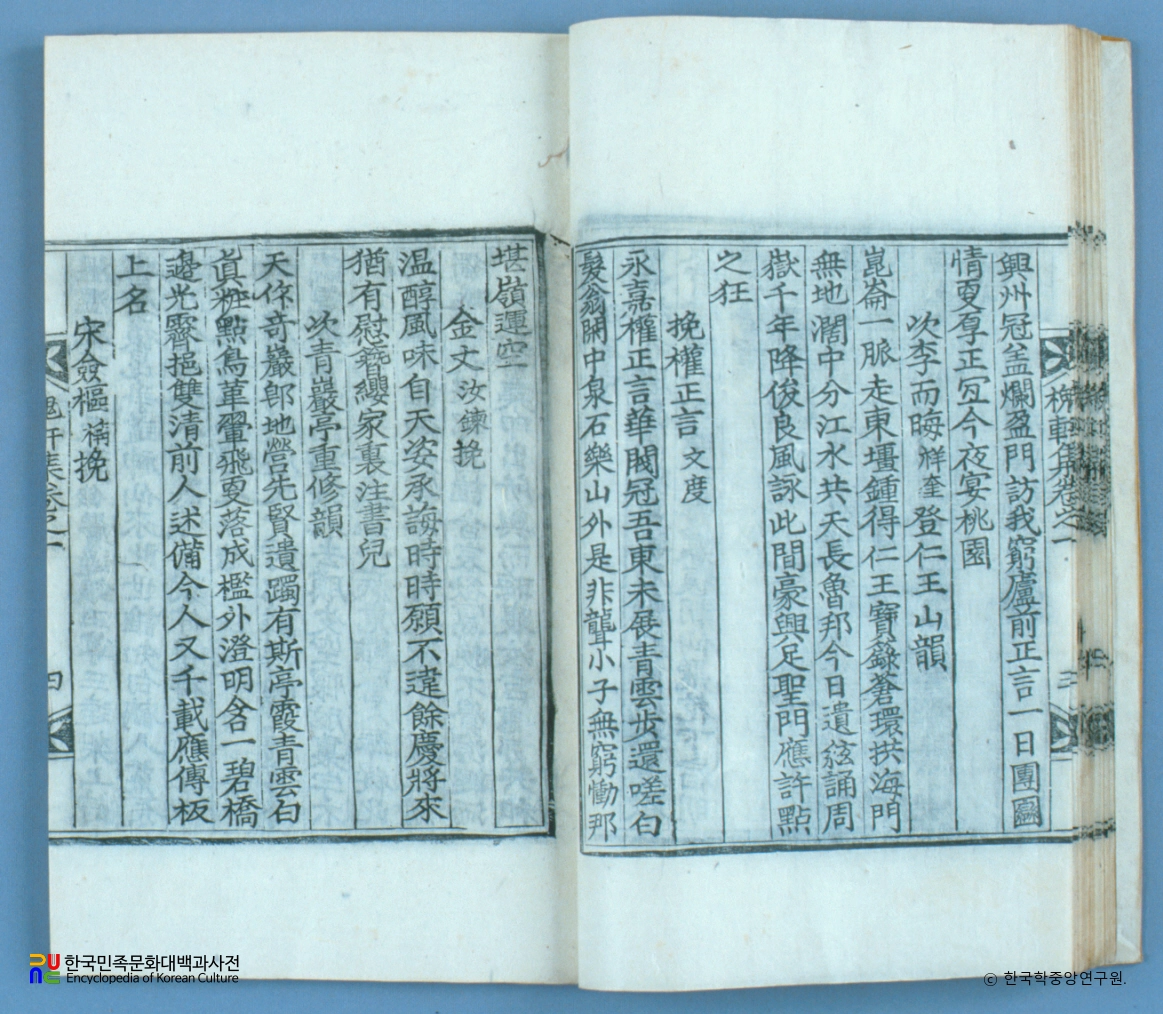 興州冠盖爛盈門訪我窮廬前正言一日團圝
情更厚正宜今夜宴桃園
次李而晦祥奎登仁王山韻
崑崙一脈走東壃鍾得仁王寶籙蒼環拱海門
無地濶中分江水共天長魯邦今日遺絃誦周
嶽千年降俊良風詠此間豪興足聖門應許點
之狂
挽權正言文度
永嘉權正言華閥冠吾東未展青雲步還嗟白
髮翁閑中泉石樂山外是非聾小子無窮慟那
堪嶺運空
金丈汝鍊挽
温醇風味自天姿承誨時時願不違餘慶將來
猶有慰簪纓家裏注書兒
次青巖亭重修韻
天作奇巖卽地營先賢遺躅有斯亭霞青雲白
眞粧點鳥革翬飛更落成檻外澄明含一碧橋
邊光霽挹雙清前人述備今人又千載應傳板
上名
宋僉樞 挽
集卷之一
四
한국민족문화대백과사전
Encyclopedia of Korean Culture
© 한국학중앙연구원.